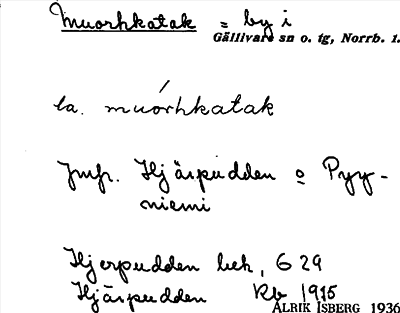 Muorhkatak = by i
Gällivare sn o. tg, Norrb. l.
la. muórhkatak
Jmfr. Hjärpudden o Pyy-
niemi
Hjerpudden bek, G 29
Hjärpudden Rb 1915
ALRIK ISBERG 1936